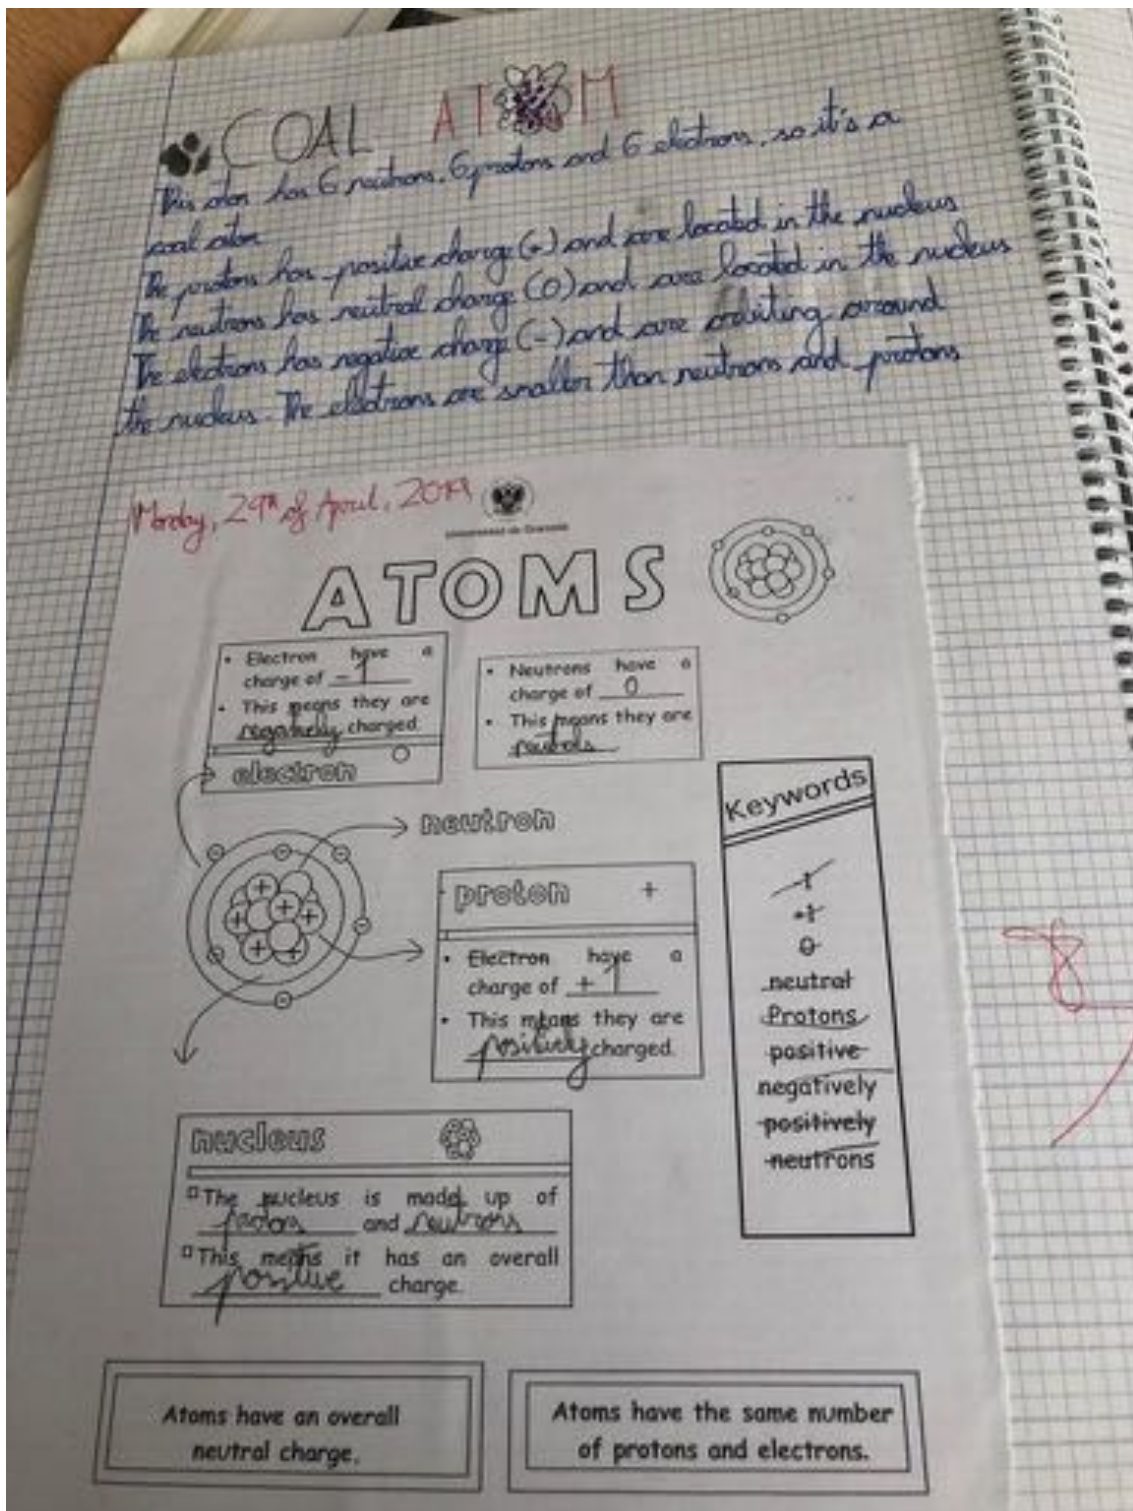 COAL ATOM
This atom has 6 neutrons, 6 protons and 6 electrons, so it's a
coal atom
The protons has positive charge (+) and are located in the nucleus
The neutrons has neutral charge (0) and are located in the nucleus
The electrons has negative charge (-) and are orbiting around
the nucleus. The electrons are smaller than neutrons and protons
Monday, 29th of April, 2019
Universidad de Granada
ATOMS
• Electron have a
charge of -1
• This means they are
negatively charged.
electron
• Neutrons have a
charge of 0
• This means they are
neutrals
neutron
proton +
• Electron have a
charge of +1
• This means they are
positively charged.
Keywords
-1
+1
0
neutral
Protons
positive
negatively
positively
neutrons
nucleus
The nucleus is made up of
protons and neutrons
This means it has an overall
positive charge.
Atoms have an overall
neutral charge.
Atoms have the same number
of protons and electrons.